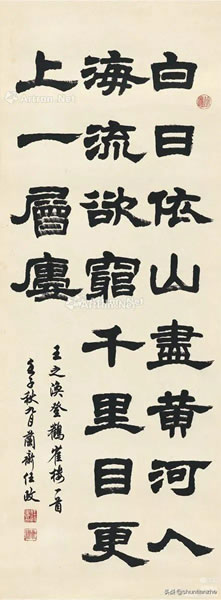 白日依山盡黄河入
海流欲窮千里目更
上一層廔
王之渙登鸛雀楼一首
壬子秋九月蘭齋任政
头条 @shuntianzhe